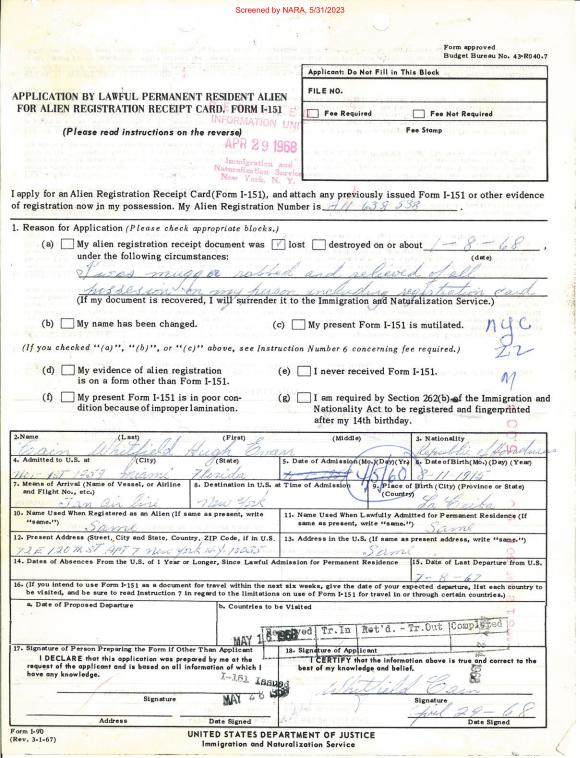 Screened by NARA, 5/31/2023
Form approved
Budget Bureau No. 43-R040.7
APPLICATION BY LAWFUL PERMANENT RESIDENT ALIEN
FOR ALIEN REGISTRATION RECEIPT CARD, FORM I-151
(Please read instructions on the reverse)
INFORMATION UNI
APR 29 1968
Immigration and
Naturalization Service
New York, N. Y.
Applicant: Do Not Fill in This Block
FILE NO.
Fee Required Fee Not Required
Fee Stamp
I apply for an Alien Registration Receipt Card (Form I-151), and attach any previously issued Form I-151 or other evidence
of registration now in my possession. My Alien Registration Number is A11 638 538 .
1. Reason for Application (Please check appropriate blocks.)
(a) My alien registration receipt document was lost destroyed on or about 1-8-68 ,
under the following circumstances: (date)
I was mugged robbed and relieved of all
possession on my person including registration card
(If my document is recovered, I will surrender it to the Immigration and Naturalization Service.)
(b) My name has been changed. (c) My present Form I-151 is mutilated.
NYC
22
M
(If you checked "(a)", "(b)", or "(c)" above, see Instruction Number 6 concerning fee required.)
(d) My evidence of alien registration
is on a form other than Form I-151.
(e) I never received Form I-151.
(f) My present Form I-151 is in poor con-
dition because of improper lamination.
(g) I am required by Section 262(b) of the Immigration and
Nationality Act to be registered and fingerprinted
after my 14th birthday.
2. Name (Last) (First) (Middle) 3. Nationality
Whitfield Hugh Republic of Honduras
4. Admitted to U.S. at (City) (State) 5. Date of Admission (Mo.) (Day) (Yr) 6. Date of Birth (Mo.) (Day) (Year)
Miami Florida 4/5/60 8-11-1912
7. Means of Arrival (Name of Vessel, or Airline
and Flight No., etc.)
8. Destination in U.S. at Time of Admission 9. Place of Birth (City) (Province or State)
(Country)
air line New York La Ceiba
10. Name Used When Registered as an Alien (If same as present, write
"same.")
Same
11. Name Used When Lawfully Admitted for Permanent Residence (If
same as present, write "same.")
Same
12. Present Address (Street, City and State, Country, ZIP Code, if in U.S.
72 E 120 St APT 7 New York N.Y. 10035
13. Address in the U.S. (If same as present address, write "same.")
Same
14. Dates of Absences From the U.S. of 1 Year or Longer, Since Lawful Admission for Permanent Residence 15. Date of Last Departure from U.S.
7-8-67
16. (If you intend to use Form I-151 as a document for travel within the next six weeks, give the date of your expected departure, list each country to
be visited, and be sure to read Instruction 7 in regard to the limitations on use of Form I-151 for travel in or through certain countries.)
a. Date of Proposed Departure b. Countries to be Visited
Tr. In Ret'd. - Tr. Out Completed
17. Signature of Person Preparing the Form if Other Than Applicant
I DECLARE that this application was prepared by me at the
request of the applicant and is based on all information of which I
have any knowledge.
I-151 Issued
Signature
Address Date Signed
18. Signature of Applicant
I CERTIFY that the information above is true and correct to the
best of my knowledge and belief.
Whitfield
Signature
April 29-68
Date Signed
Form I-90
(Rev. 3-1-67)
UNITED STATES DEPARTMENT OF JUSTICE
Immigration and Naturalization Service